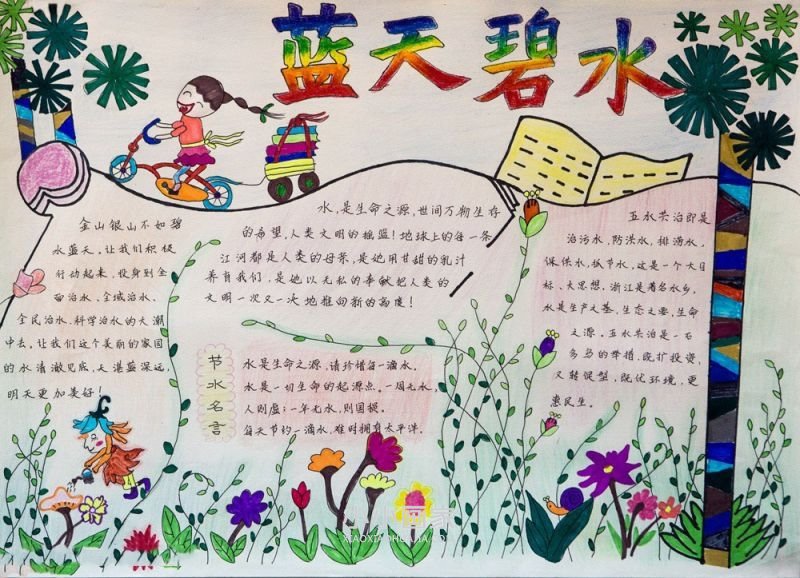 蓝天碧水
金山银山不如碧
水蓝天，让我们积极
行动起来，投身到全
面治水、全域治水、
全民治水、科学治水的大潮
中去，让我们这个美丽的家园
的水清澈见底，天湛蓝深远，
明天更加美好！
水，是生命之源，世间万物生存
的希望，人类文明的摇蓝！地球上的每一条
江河都是人类的母亲，是她用甘甜的乳汁
养育我们，是她以无私的奉献把人类的
文明一次又一次地推向新的高度！
节水名言
水是生命之源，请珍惜每一滴水。
水是一切生命的起源点，一周无水，
人则虚；一年无水，则国损。
每天节约一滴水，难时拥有太平洋。
五水共治即是
治污水，防洪水，排涝水，
保供水，抓节水，这是一个大目
标、大思想，浙江是著名水乡，
水是生产之基，生态之要，生命
之源。五水共治是一石
多鸟的举措，既扩投资，
又转促型，既优环境，更
惠民生。
XIAOXIAOHUAJIA.COM